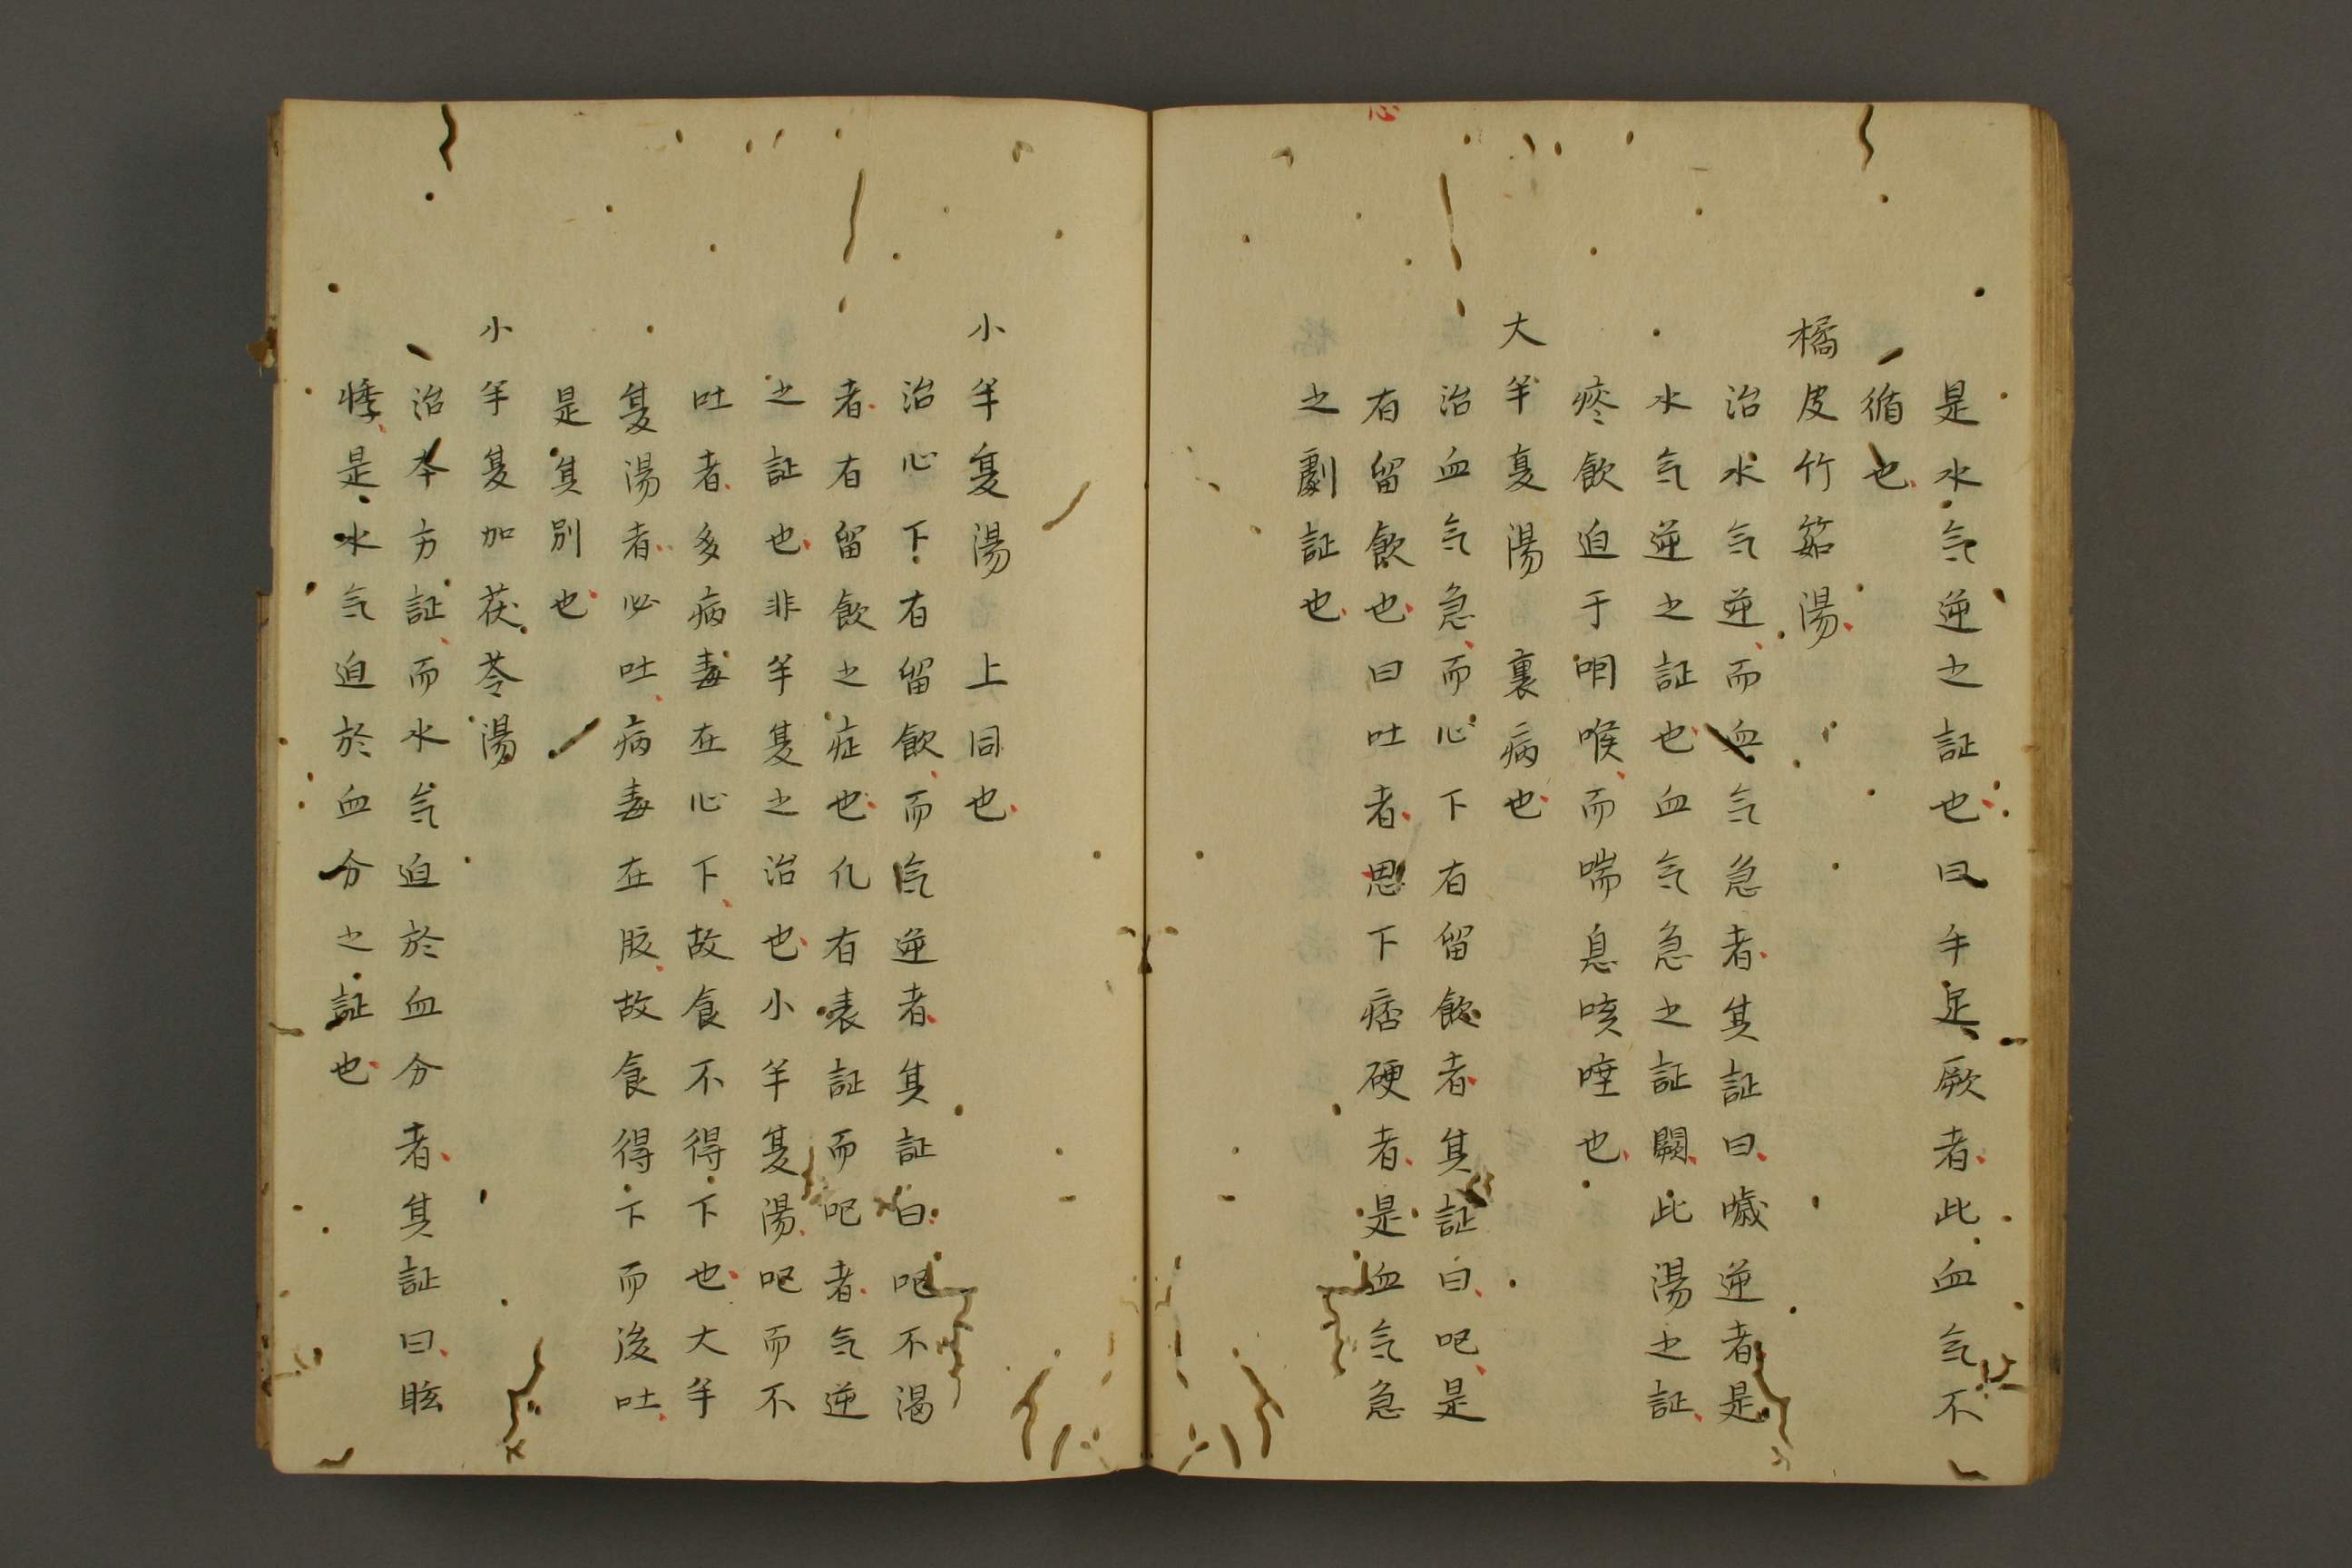 是水气逆之証也曰手足厥者此血气不
循也
橘皮竹筎湯
治水气逆而血气急者其証曰噦逆者是
水气逆之証也血气急之証闕此湯之証
痰飲迫于咽喉而喘息咳唾也
大半夏湯　裏病也
治血气急而心下有留飲者其証曰吧是
有留飲也曰吐者思下痞硬者是血气急
之劇証也
小半夏湯　上同也
治心下有留飲而气逆者其証曰吧不渴
者有留飲之症也凡有表証而吧者气逆
之証也非半夏之治也小半夏湯吧而不
吐者多病毒在心下故食不得下也大半
夏湯者必吐病毒在腹故食得下而後吐
是其別也
小半夏加茯苓湯
治本方証而水气迫於血分者其証曰眩
悸是水气迫於血分之証也